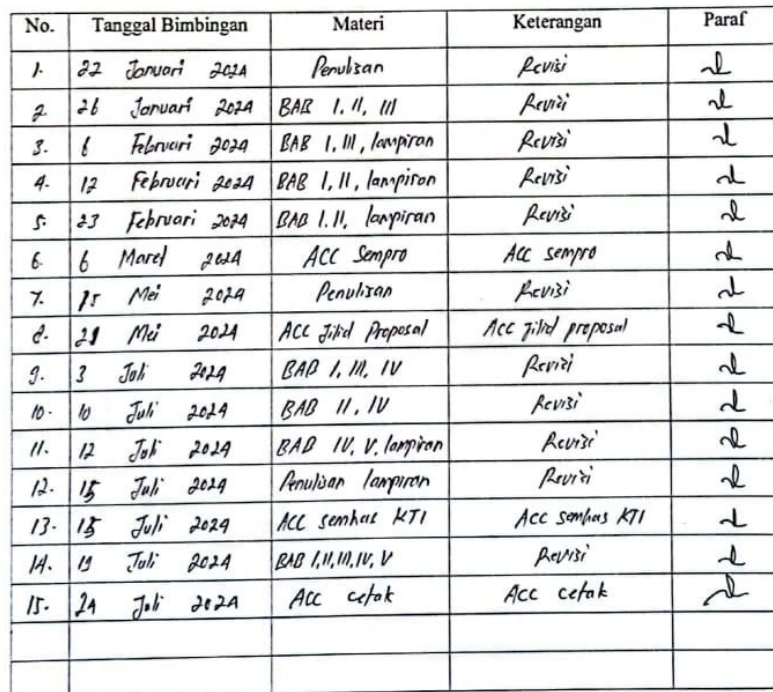 No. Tanggal Bimbingan Materi Keterangan Paraf
1. 22 Januari 2024 Penulisan Revisi
2. 26 Januari 2024 BAB I, II, III Revisi
3. 6 Februari 2024 BAB I, III, lampiran Revisi
4. 12 Februari 2024 BAB I, II, lampiran Revisi
5. 23 Februari 2024 BAB I. II, lampiran Revisi
6. 6 Maret 2024 ACC Sempro ACC sempro
7. 15 Mei 2024 Penulisan Revisi
8. Mei 2024 ACC Jilid Proposal ACC jilid proposal
9. 3 Juli 2024 BAB I, III, IV Revisi
10. 10 Juli 2024 BAB II, IV Revisi
11. 12 Juli 2024 BAB IV, V, lampiran Revisi
12. 15 Juli 2024 Penulisan lampiran Revisi
13. Juli 2024 ACC semhas KTI ACC semhas KTI
14. 19 Juli 2024 BAB I, II, III, IV, V Revisi
15. 24 Juli 2024 ACC cetak ACC cetak